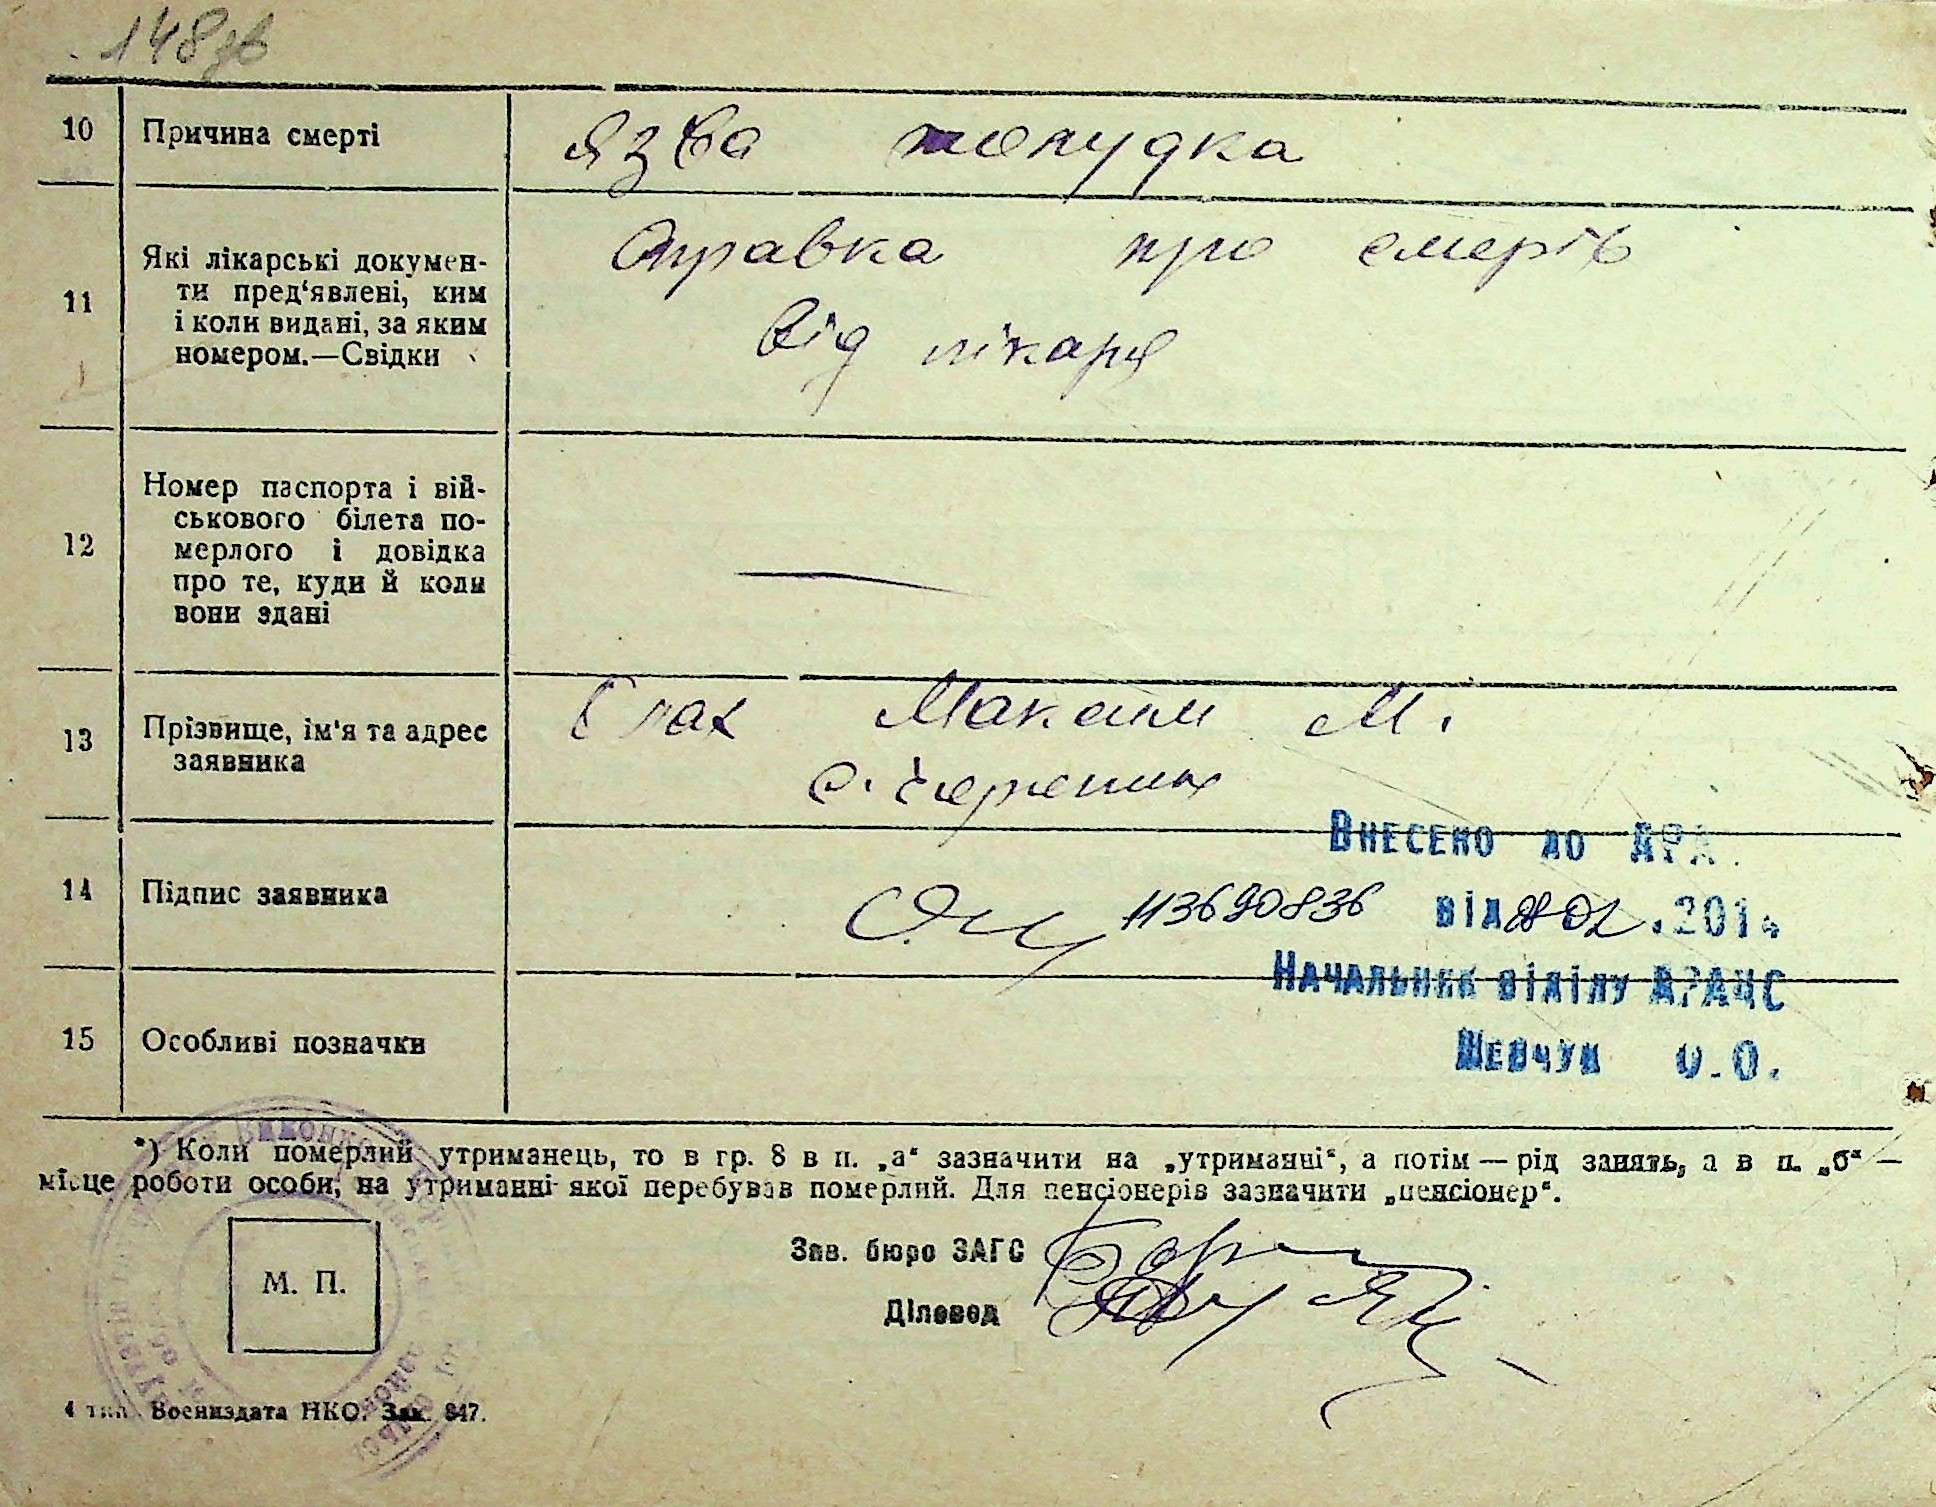 148зв
10 Причина смерті Язва желудка
11 Які лікарські докумен-
ти пред'явлені, ким
і коли видані, за яким
номером.—Свідки
Справка про смерть
від лікаря
12 Номер паспорта і вій-
ськового білета по-
мерлого і довідка
про те, куди й коли
вони здані
—
13 Прізвище, ім'я та адрес
заявника
Максим М.
с.
14 Підпис заявника
15 Особливі позначки
Внесено до ДРА
113690836 від .2014
Начальник віділу ДРАЦС
Шевчук О.О.
*) Коли померлий утриманець, то в гр. 8 в п. „а“ зазначити на „утриманні“, а потім — рід занять, а в п. „б“ —
місце роботи особи, на утриманні якої перебував померлий. Для пенсіонерів зазначити „пенсіонер“.
М. П.
Зав. бюро ЗАГС
Діловод
4 тип. Воениздата НКО. Зак. 847.